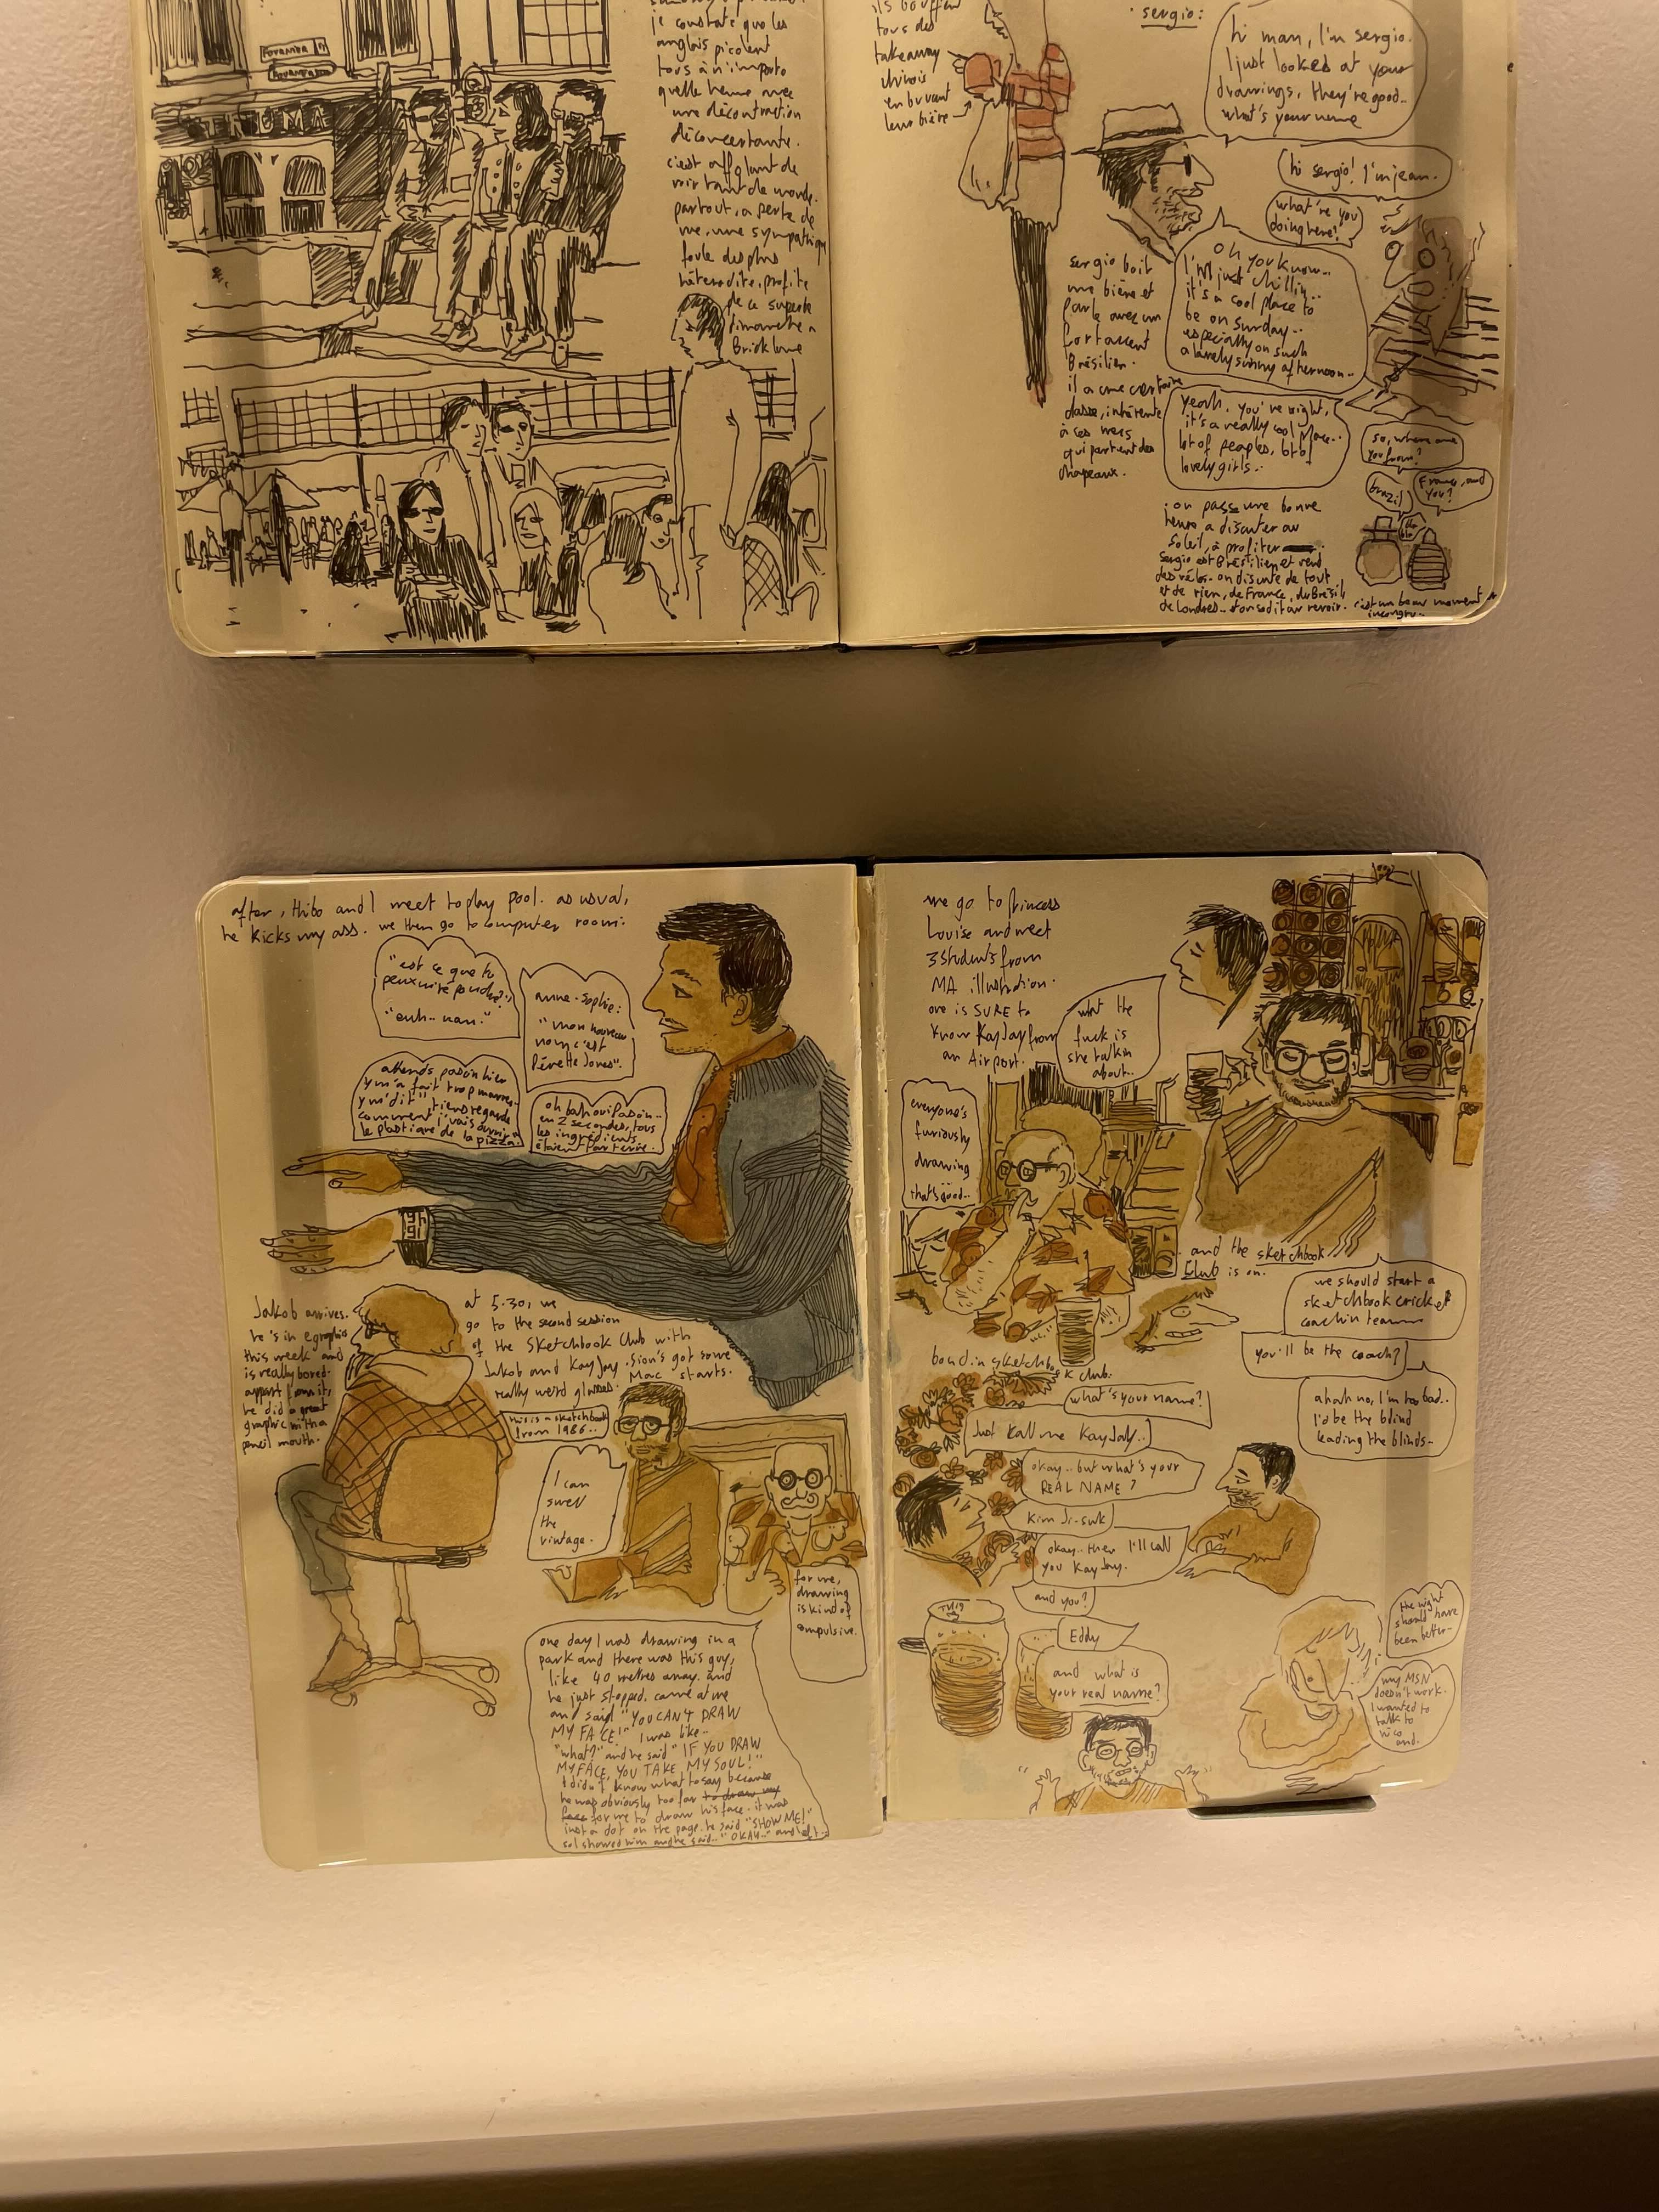 TRUMA
je constate que les
anglais picolent
tous à n'importe
quelle heure avec
une décontraction
déconcertante.
c'est affolant de
voir tant de monde.
partout, a perte de
vue, une sympathique
foule des plus
hétéroclite, profite
de ce superbe
dimanche a
Brick Lane
ils bouffent
tous des
takeaway
chinois
en buvant
leur bière
sergio:
hi man, I'm sergio.
I just looked at your
drawings, they're good..
what's your name
hi sergio! I'm jean.
what're you
doing here?
Oh you know...
I'm just chillin..
it's a cool place to
be on sunday..
especially on such
a lovely sunny afternoon..
sergio boit
une bière et
parle avec un
fort accent
Brésilien.
il a une certaine
classe, inhérente
à ces mecs
qui portent des
chapeaux.
yeah. you're right,
it's a really cool place..
lot of peoples, lot of
lovely girls..
so, where are
you from?
France, and
you?
brazil
on passe une bonne
heure a discuter au
soleil, à profiter
sergio est Brésilien et vend
des vélos. on discute de tout
et de rien, de France, du Brésil,
de Londres.. et on se dit au revoir. c'est un beau moment
incongru..
after, thibo and I meet to play pool. as usual,
he kicks my ass. we then go to computer room:
"est ce que tu
peux m'répondre?"
"euh.. nan."
anne-sophie:
"mon nouveau
nom c'est
Pérette Jones".
attends pasòn hier
y m'a fait trop marrer
y m'dit "tiens regarde
comment j'vais ouvrir
le plastique de la pizza.
oh bah oui Pasòn..
en 2 secondes, tous
les ingrédients
étaient par terre.
Jakob arrives.
he's in egraphic
this week and
is really bored.
appart from it,
he did a great
graphic with a
pencil mouth.
at 5:30, we
go to the second session
of the Sketchbook Club with
Jakob and KayJay. Sion's got some
really weird glasses. Mac starts.
this is a sketchbook
from 1986..
I can
smell
the
vintage.
for me,
drawing
is kind of
compulsive.
one day I was drawing in a
park and there was this guy,
like 40 metres away. and
he just stopped. came at me
and said "YOU CAN'T DRAW
MY FACE!" I was like..
"what?" and he said "IF YOU DRAW
MY FACE, YOU TAKE MY SOUL!"
I didn't know what to say because
he was obviously too far to draw my
face for me to draw his face. it was
just a dot on the page. he said "SHOW ME!"
so I showed him and he said.. "OKAY.." and left..
we go to Princess
Louise and meet
3 students from
MA illustration.
one is SURE to
know KayJay from
an Airport.
what the
fuck is
she talkin
about..
everyone's
furiously
drawing
that's good..
and the sketchbook
Club is on.
we should start a
sketchbook cricket
coachin team
you'll be the coach?
ahah no, I'm too bad..
I'd be the blind
leading the blinds..
sketchbook club.
what's your name?
Just Kall me KayJay..
okay.. but what's your
REAL NAME?
Kim Ji-suk
okay.. then I'll call
you KayJay.
and you?
Eddy
and what is
your real name?
the night
should have
been better..
my MSN
doesn't work.
I wanted to
talk to
nico
and.